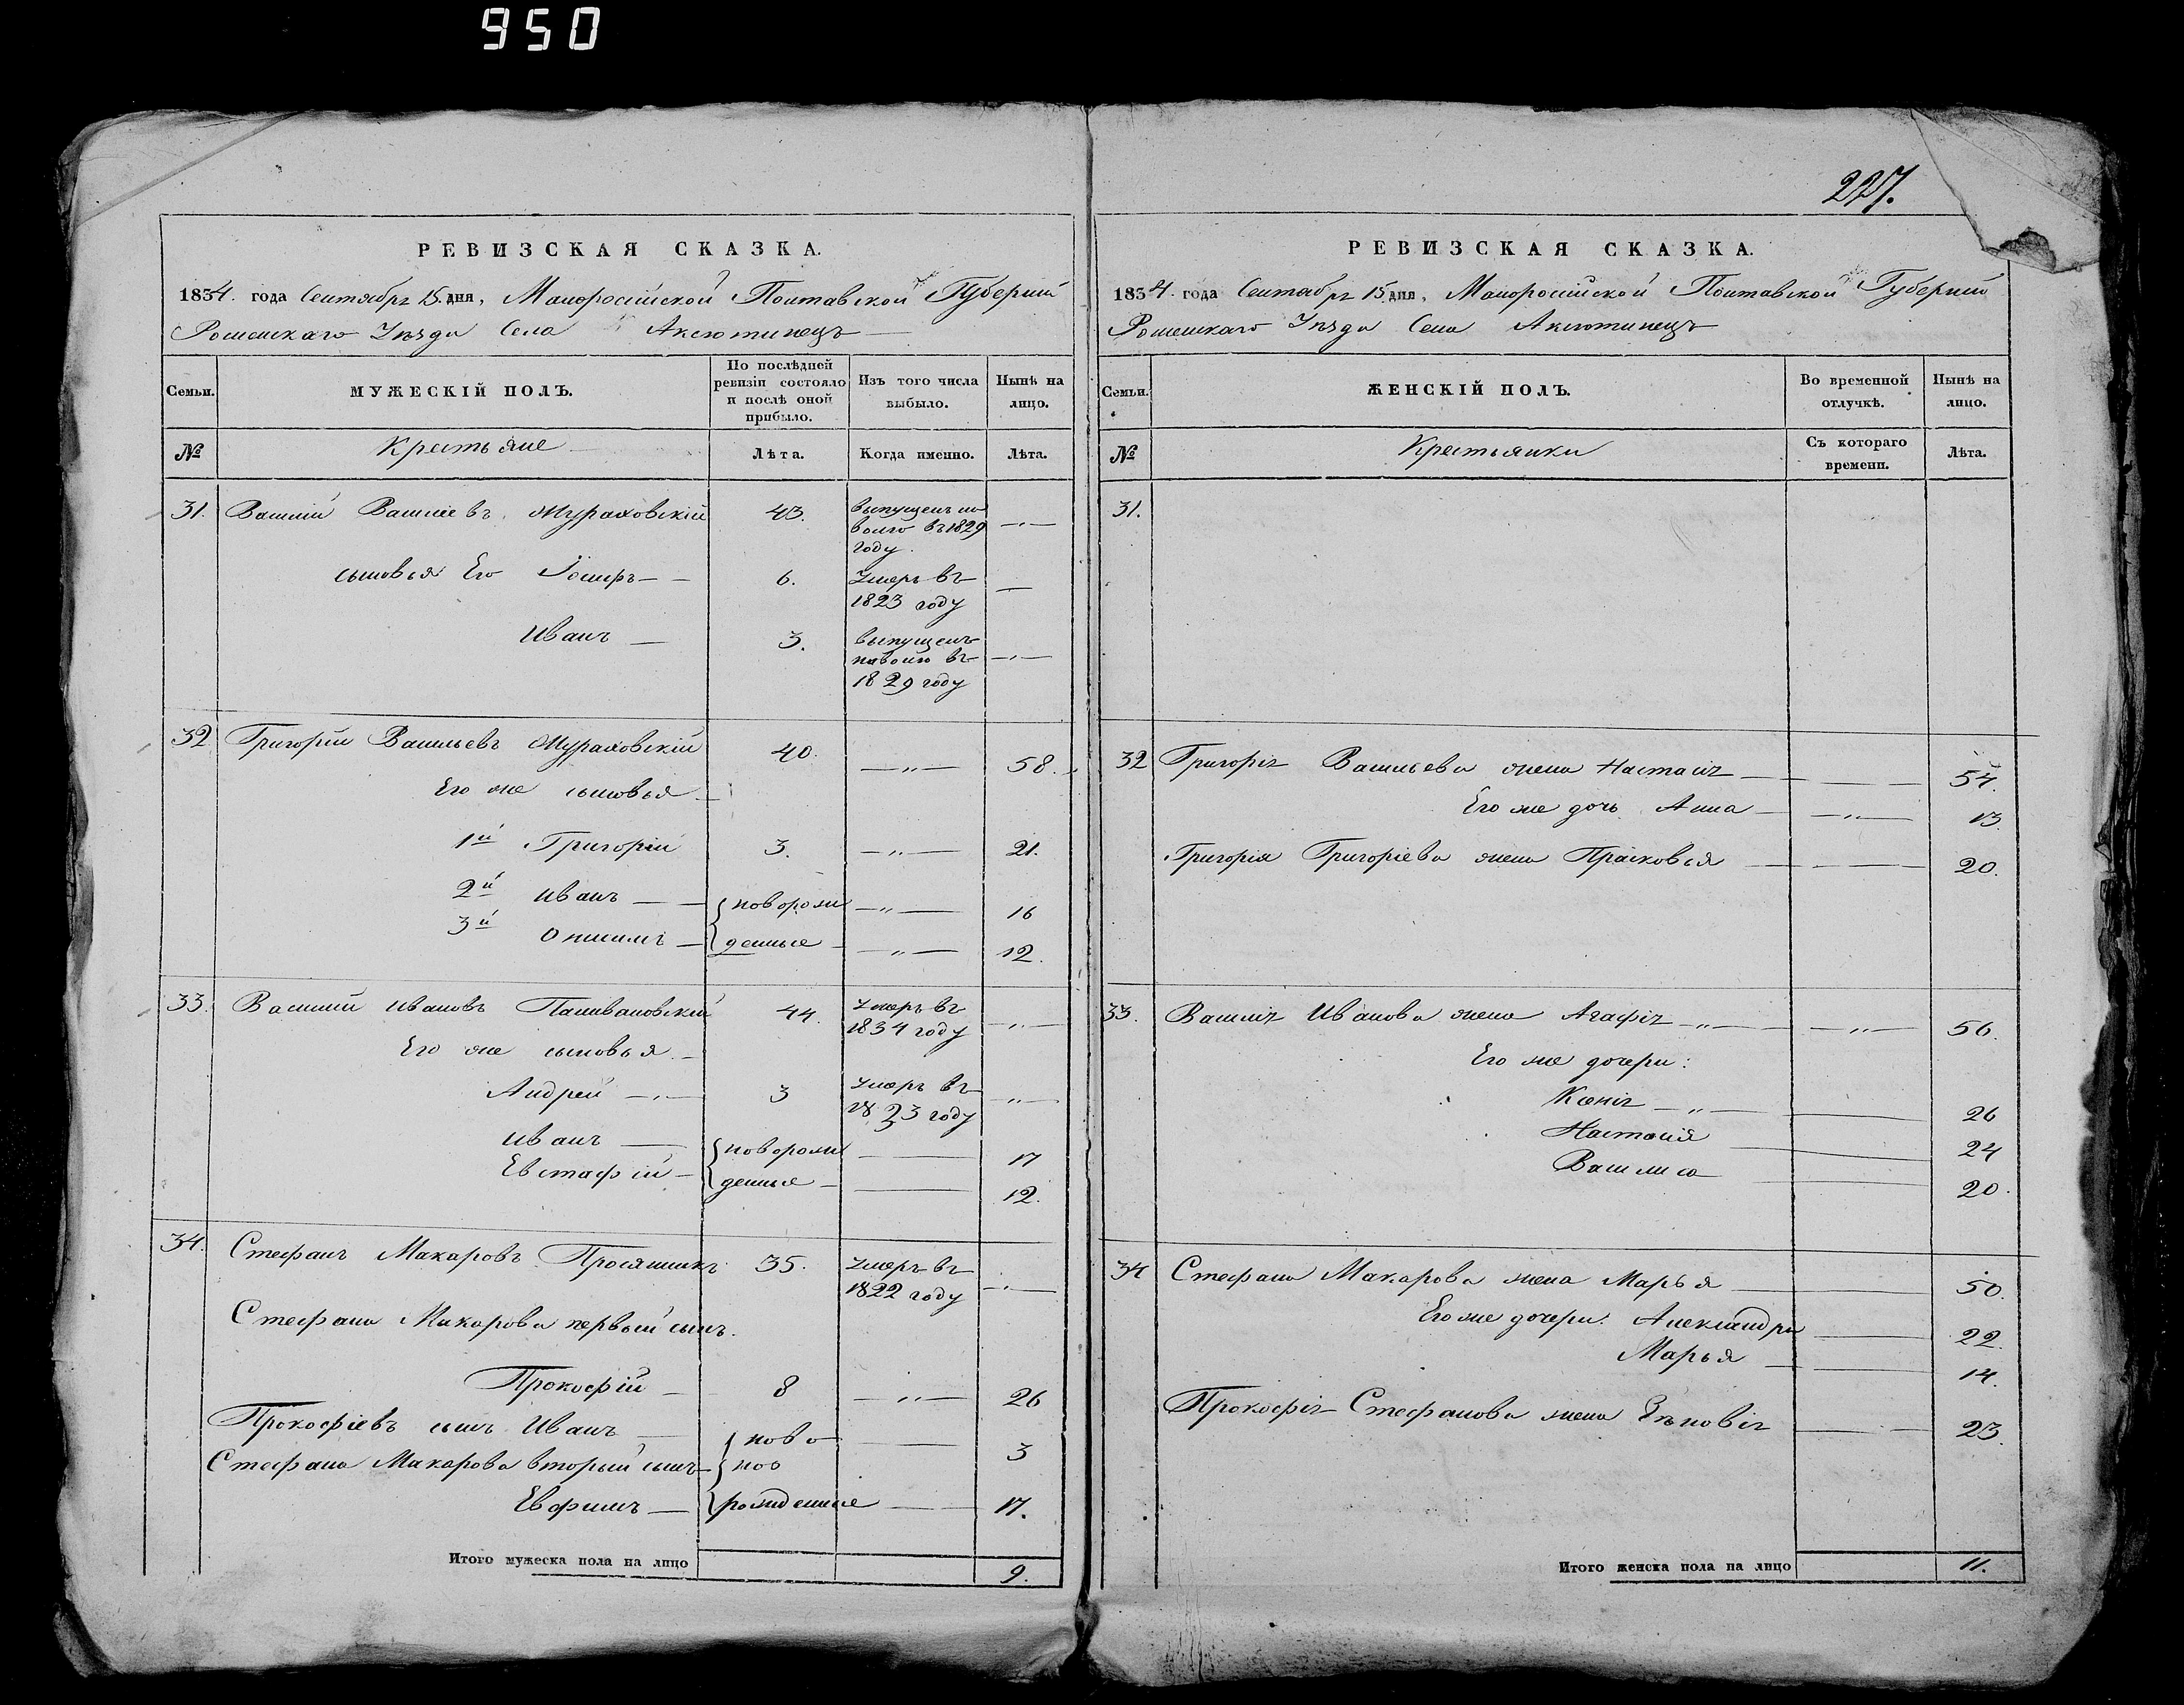 950
227.
РЕВИЗСКАЯ СКАЗКА.
1834. года Сентября 15 дня, Малоросійской Полтавской Губерніи
Роменскаго Уѣзда Села Аксютинецъ
Семьи.
МУЖЕСКІЙ ПОЛЪ.
По послѣдней ревизіи состояло и послѣ оной прибыло.
Изъ того числа выбыло.
Нынѣ на лицо.
№
Крестьяне
Лѣта.
Когда именно.
Лѣта.
31. Василій Василіевъ Мураховскій 43. выпущенъ на волю въ 1829 году. —"—
сыновья Его Іосифъ — 6. Умеръ въ 1823 году —
Иванъ — 3. выпущенъ на волю въ 1829 году —"—
32 Григорій Васильевъ Мураховскій 40. —"— 58.
Его же сыновья —
1й Григорій 3. —"— 21.
2й Иванъ — новорож —"— 16
3й Онисимъ — денные —"— 12.
33. Василій Ивановъ Паливановскій 44. Умеръ въ 1834 году —"—
Его же сыновья —
Андрей —"— 3 Умеръ въ 1823 году —"—
Иванъ — новорож — 17
Евстафій — денные — 12.
34. Стефанъ Макаровъ Просяникъ 35. Умеръ въ 1822 году —"—
Стефана Макарова первый сынъ.
Прокофій — 8 —"— 26
Прокофіевъ сынъ Иванъ — ново — 3
Стефана Макарова вторый сынъ — но
Евфимъ — рожденные — 17.
Итого мужеска пола на лицо 9.
РЕВИЗСКАЯ СКАЗКА.
1834. года Сентября 15 дня, Малоросійской Полтавской Губерніи
Роменскаго Уѣзда Села Аксютинецъ
Семьи.
ЖЕНСКІЙ ПОЛЪ.
Во временной отлучкѣ.
Нынѣ на лицо.
№
Крестьянки
Съ котораго времени.
Лѣта.
31.
32 Григорія Васильева жена Настасія — — 54.
Его же дочь Анна —"— 13.
Григорія Григоріева жена Прасковья — — 20.
33. Василія Иванова жена Агафія —"— —"— 56.
Его же дочери:
Ксенія —"— — 26
Настасія — 24
Василиса — 20.
34 Стефана Макарова жена Марья — 50.
Его же дочери: Александра — 22.
Марья — 14.
Прокофія Стефанова жена Зѣновія — 23.
Итого женска пола на лицо 11.